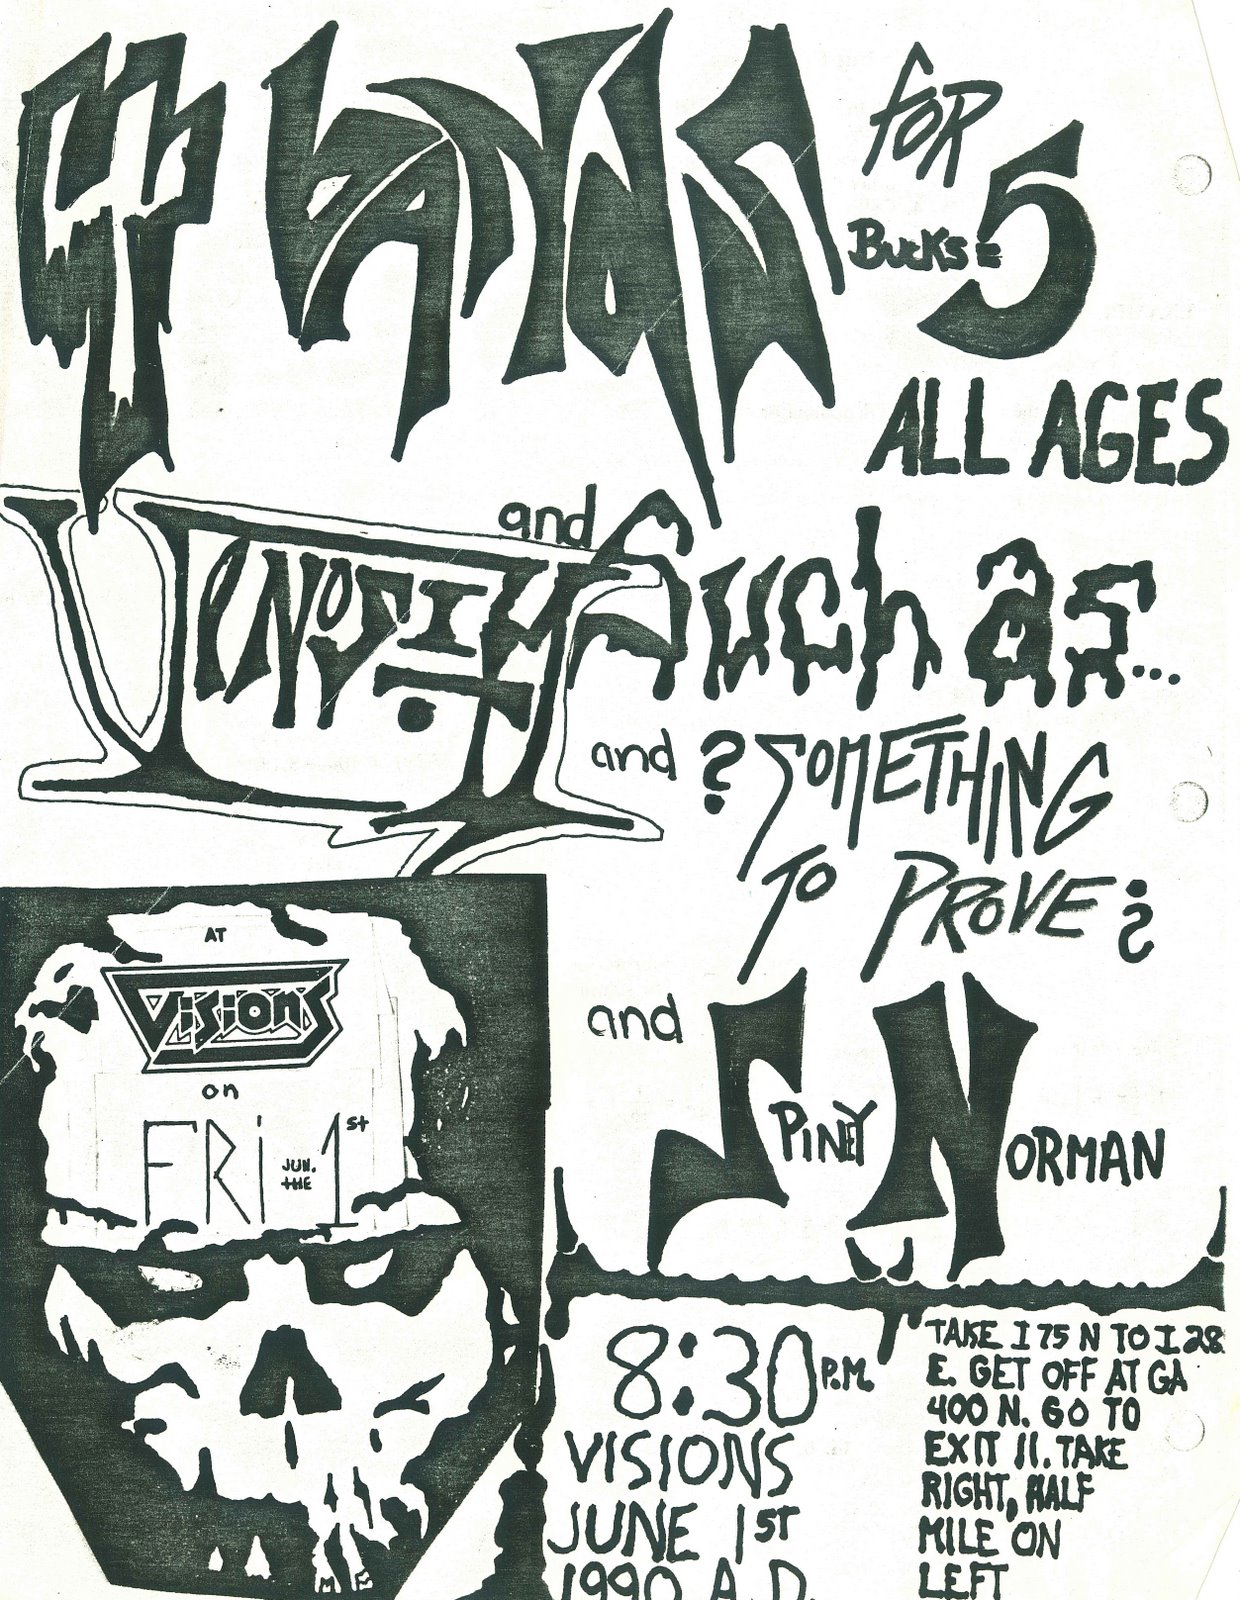 4 bANdS
FOR
Bucks = 5
ALL AGES
VeNOSITY
and Such as...
and ? SOMETHING
TO PROVE ¿
and SPINEY NORMAN
AT
VISIONS
on
FRi JUN. THE 1st
8:30 P.M.
VISIONS
JUNE 1ST
1990 A.D.
TAKE I 75 N TO I 28
E. GET OFF AT GA
400 N. GO TO
EXIT 11. TAKE
RIGHT, HALF
MILE ON
LEFT